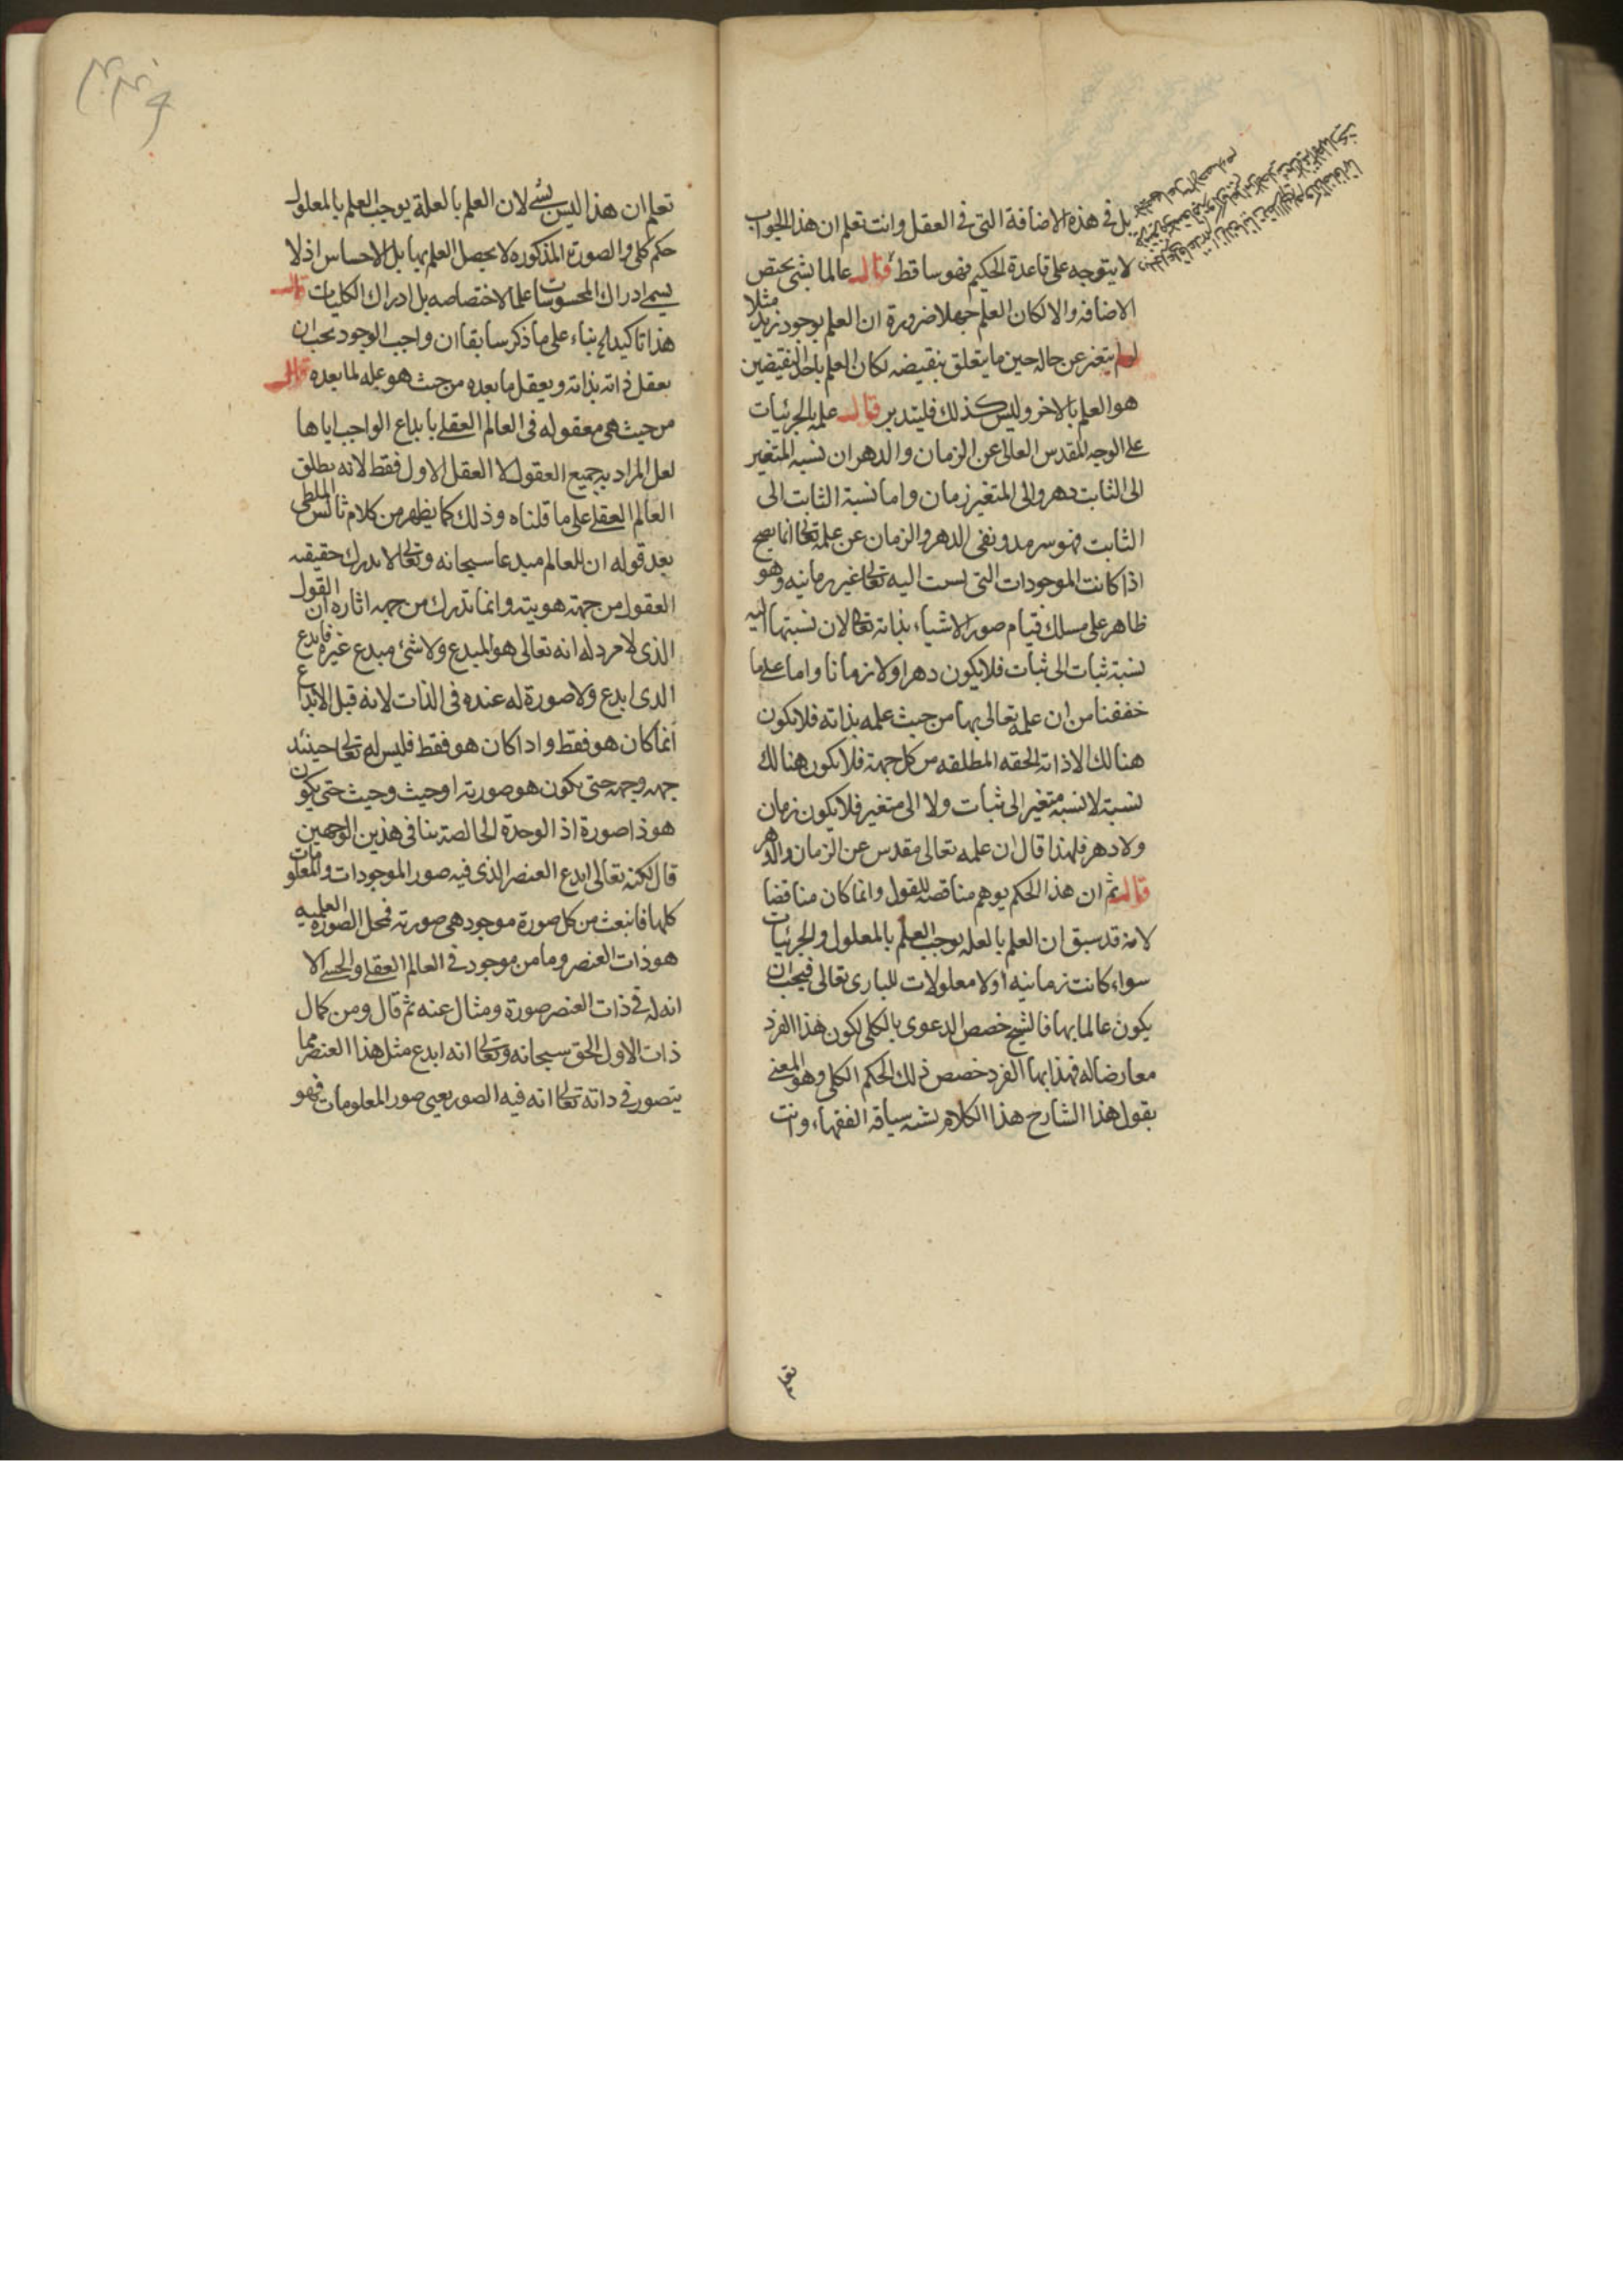 بل فى هذه الاضافة التى فى العقل وانت تعلم ان هذا الجواب
لا يتوجه على قاعدة الحكيم فهو ساقط قال عالما بشى يختص
الاضافه والا لكان العلم جهلا ضرورة ان العلم بوجود زيد مثلا
لم يتغير عن حاله حين ما يتعلق بنقيضه لكان العلم باحد النقيضين
هو العلم بالاخر وليس كذلك فليتدبر قال علمه بالجزئيات
على الوجه المقدس العالى عن الزمان والدهر ان نسبة المتغير
الى الثابت دهر والى المتغير زمان واما نسبة الثابت الى
الثابت فهو سرمد ونفى الدهر والزمان عن علمه تعالى انما يصح
اذا كانت الموجودات التى نسبت اليه تعالى غير زمانيه وهو
ظاهر على مسلك قيام صور الاشياء بذاته تعالى لان نسبتها اليه
نسبة ثبات الى ثبات فلا يكون دهرا ولا زمانا واما على ما
حققنا من ان علمه تعالى بها من حيث علمه بذاته فلا يكون
هنالك الا ذاته الحقه المطلقه من كل جهة فلا يكون هنالك
نسبة لا نسبة متغير الى ثبات ولا الى متغير فلا يكون زمان
ولا دهر فلهذا قال ان علمه تعالى مقدس عن الزمان والدهر
قال ثم ان هذا الحكم يوهم مناقضه للقول وانما كان مناقضا
لانه قد سبق ان العلم بالعله يوجب العلم بالمعلول والجزئيات
سواء كانت زمانيه او لا معلولات للبارى تعالى فيجب ان
يكون عالما بها فالشيخ خصص الدعوى بالكلى لكون هذا الفرد
معارضا له فهذا بها الفرد خصص ذلك الحكم الكلى وهو المعنى
بقول هذا الشارح هذا الكلام يشبه سياقه الفقهاء وانت
تعلم
تعلم ان هذا ليس بشئ لان العلم بالعلة يوجب العلم بالمعلول
حكم كلى والصورة المذكوره لا يحصل العلم بها بل الاحساس اذ لا
يسمى ادراك المحسوسات علما لاختصاصه بل ادراك الكليات قال
هذا تاكيد الخ بناء على ما ذكر سابقا ان واجب الوجود يجب ان
يعقل ذاته بذاته ويعقل ما بعده من حيث هو عله لما بعده قال
من حيث هى معقوله فى العالم العقلى بابداع الواجب اياها
لعل المراد به جميع العقول لا العقل الاول فقط لانه يطلق
العالم العقلى على ما قلناه وذلك كما يظهر من كلام ثالس الملطى
بعد قوله ان للعالم مبدعا سبحانه وتعالى لا يدرك حقيقته
العقول من جهة هويته وانما تدرك من جهه اثاره ان القول
الذى لا مرد له انه تعالى هو المبدع ولا شئ مبدع غيره فابدع
الذى ابدع ولا صورة له عنده فى الذات لانه قبل الابداع
انما كان هو فقط واذا كان هو فقط فليس له تعالى حينئذ
جهه وجهه حتى يكون هو صورته او حيث وحيث حتى يكون
هو ذا صورة اذ الوحدة الخالصة تنافى هذين الوجهين
قال لكنه تعالى ابدع العنصر الذى فيه صور الموجودات والمعلومات
كلها فانبعث من كل صورة موجود هى صورته فمحل الصوره العلميه
هو ذات العنصر وما من موجود فى العالم العقلى والحسى الا
انه له فى ذات العنصر صورة ومثال عنه ثم قال ومن كمال
ذات الاول الحق سبحانه وتعالى انه ابدع مثل هذا العنصر مما
يتصور فى ذاته تعالى انه فيه الصور يعنى صور المعلومات فهو